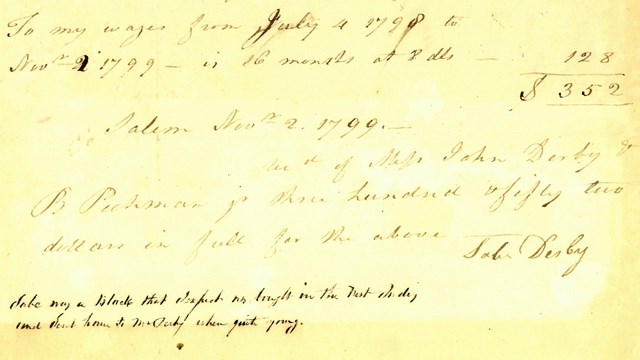 To my wages from July 4 1798 to
Novr 2 1799 — is 16 months at 8 dls — 128
$ 352
Salem Novr 2. 1799.—
of Messs John Derby &
B Pickman Jr three hundred & fifty two
dollars in full for the above
Sabe Derby
Sabe was a black that I expect was bought in the West Indies
and sent home to Mr Derby when quite young.